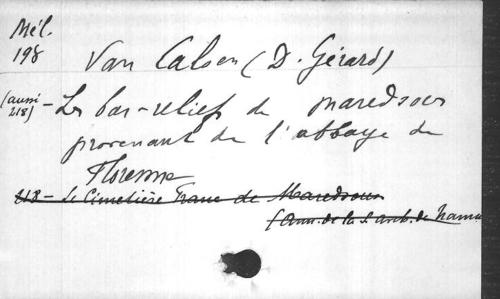 Mél.
198
Van Caloen (D. Gérard)
(aussi
218)
- Les bas-reliefs de Maredsous
provenant de l'abbaye de
Florennes
218 - Le Cimetière Franc de Maredsous
(Ann. de la S. arch. de Namur